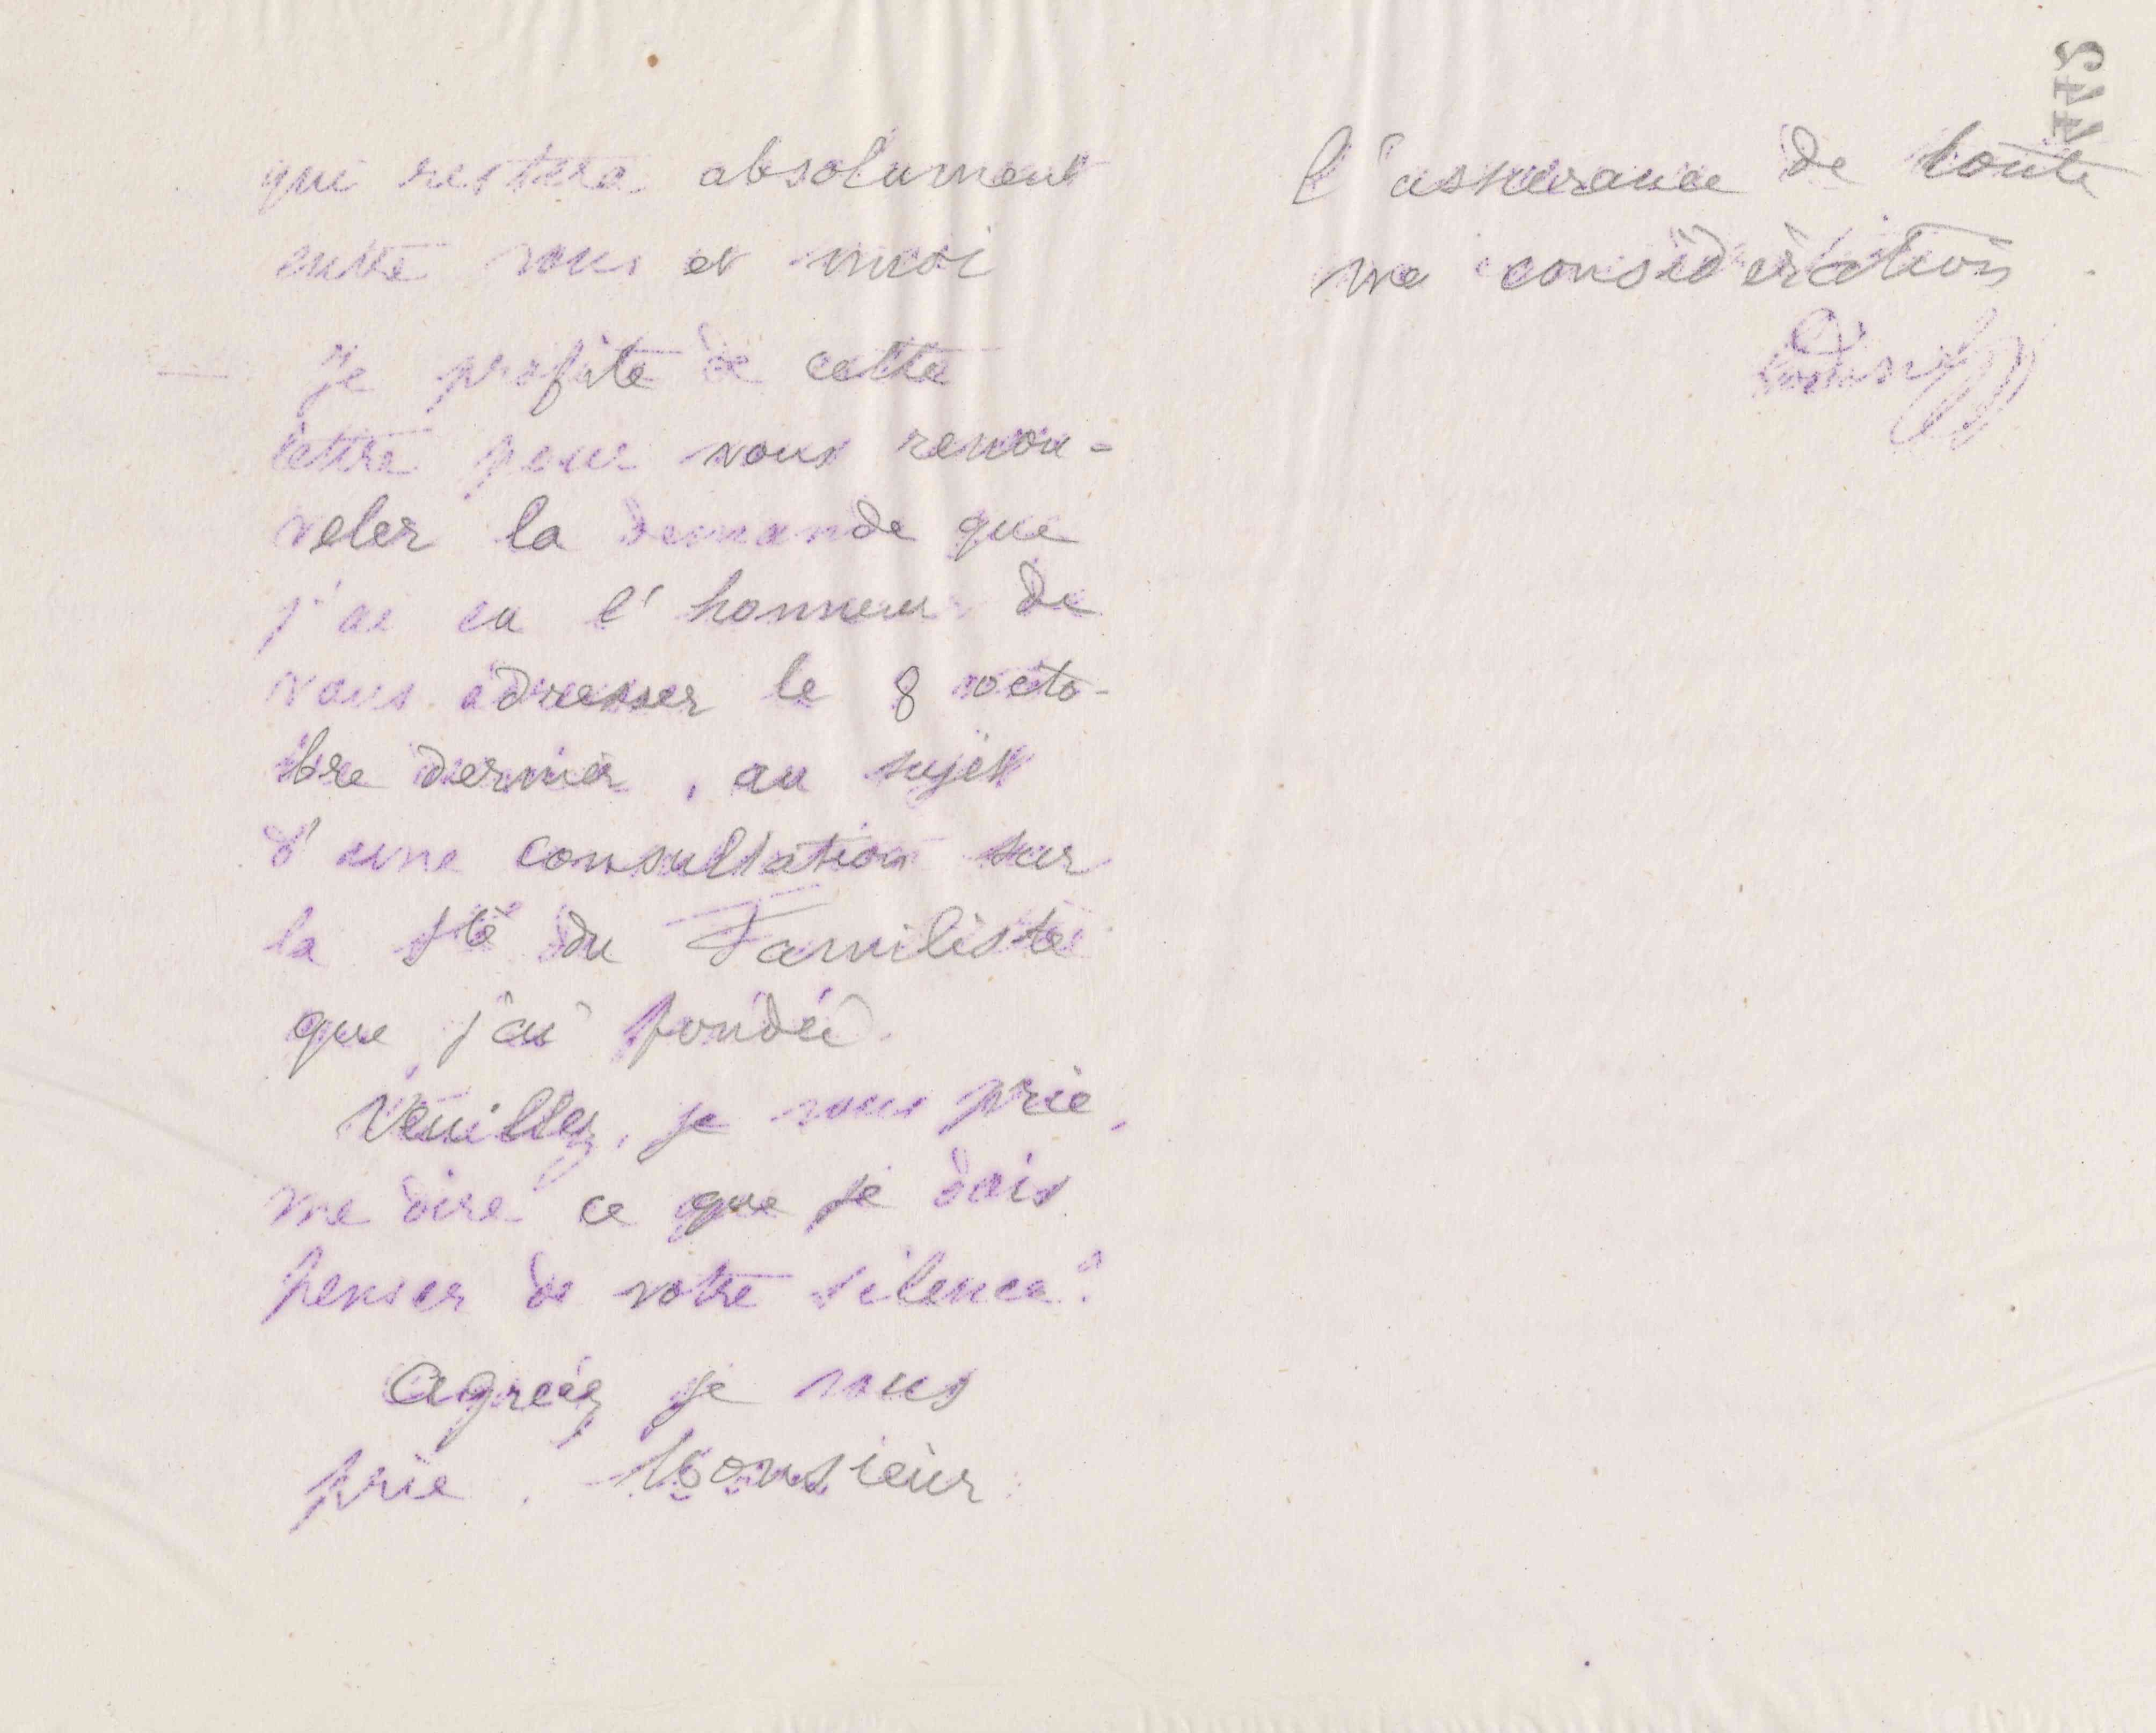 qui restera absolument
entre vous et moi
Je profite de cette
lettre pour vous renou-
veler la demande que
j'ai eu l'honneur de
vous adresser le 8 octo-
bre dernier, au sujet
d'une consultation sur
la Sté du Familistè
que j'ai fondée.
Veuillez, je vous prie,
me dire ce que je dois
penser de votre silence?
Agréez je vous
prie, Monsieur
l'assurance de toute
ma considération
Godin